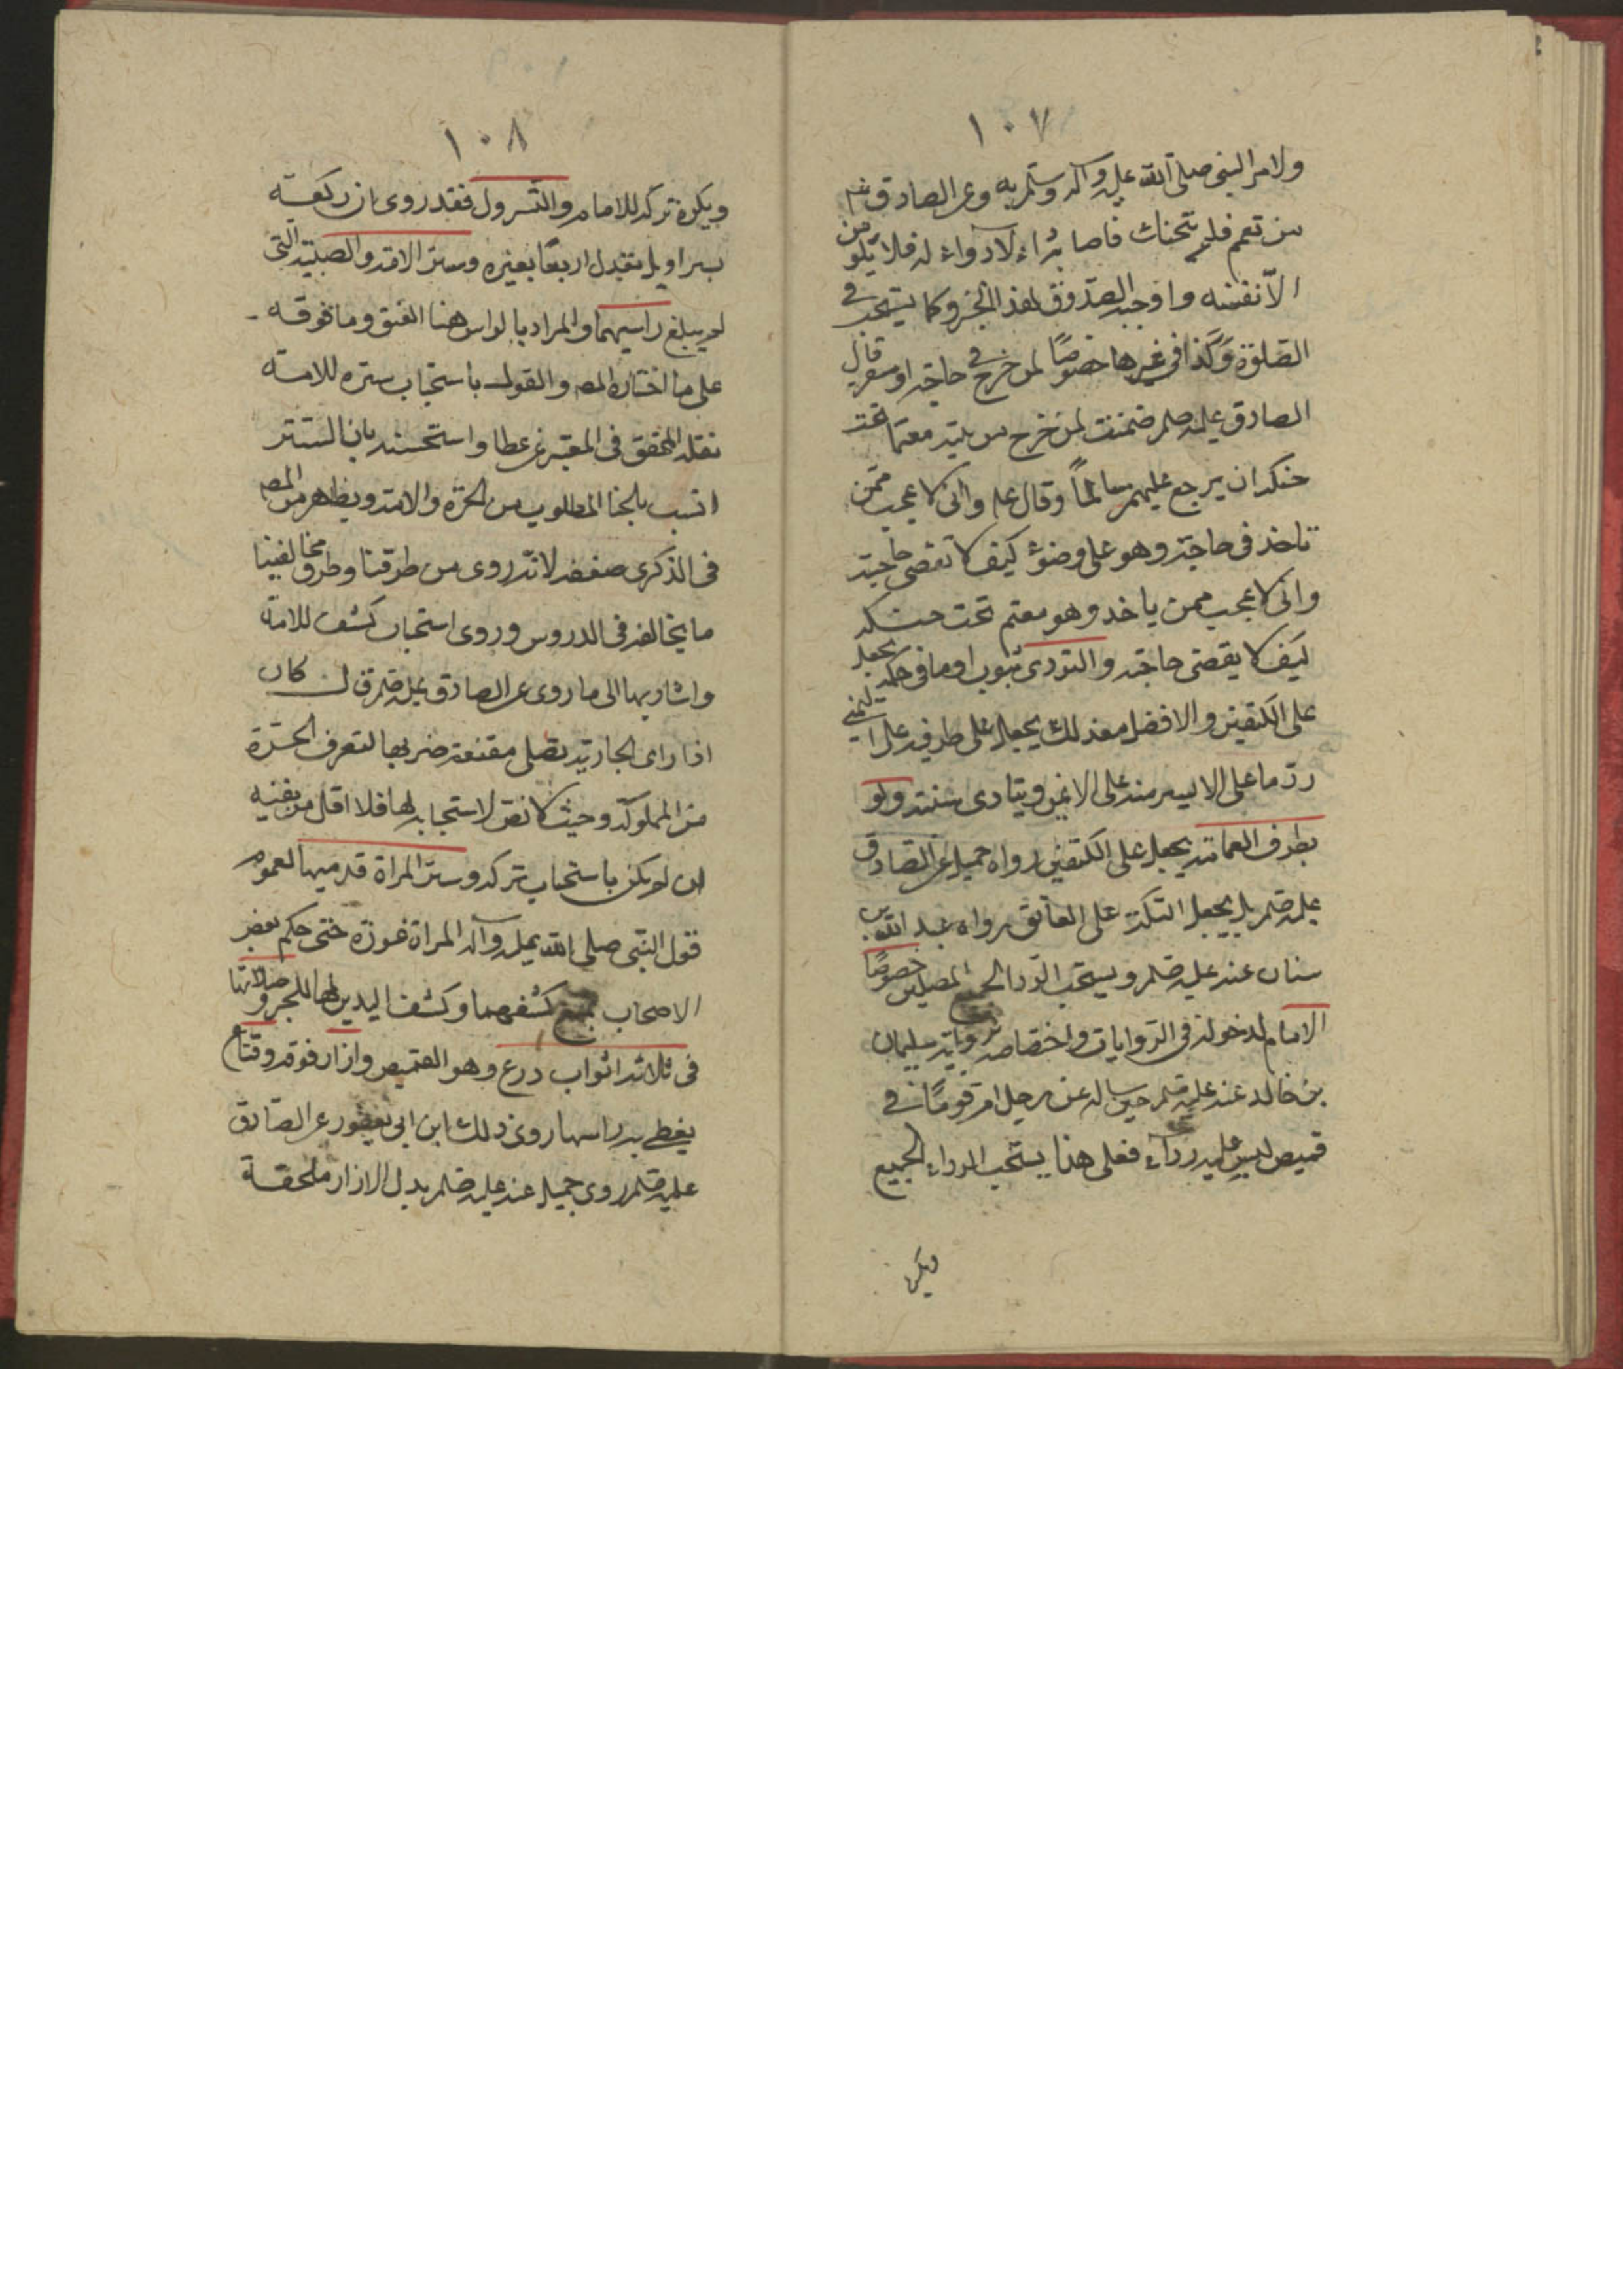 ١٠٧
ولامر النبى صلى الله عليه وآله وسلم به وعن الصادق عم
من تعمم فلم يتحنك فاصابه داء لا دواء له فلا يلومن
الا نفسه واوجبه الصدوق لهذا الخبر وكما يستحب فى
الصلوة وكذا فى غيرها خصوصا لمن خرج فى حاجته او سفر قال
الصادق عليه صلم ضمنت لمن خرج من بيته معتما تحت
حنكه ان يرجع عليهم سالما وقال علم وانى لاعجب ممن
ياخذ فى حاجته وهو على وضوء كيف لا تقضى حاجته
وانى لاعجب ممن ياخذ وهو معتم تحت حنكه
كيف لا يقضى حاجته والتردى بثوب او ما فى حكمه يجعل
على الكتفين والافضل معذلك يجعل على طرفيه على اليمنى
رد ما على الايسر منه على الايمن ويتادى سنته ولو
بطرف العمامة يجعل على الكتفين رواه جميل عن الصادق
عليه صلم بل يجعل التكة على العاتق رواه عبد الله بن
سنان عنه عليه صلم ويستحب الردا لجميع المصلين خصوصا
الامام لدخوله فى الروايات واختصاصه برواية سليمان
بن خالد عنه عليه صلم حين ساله عن رجل ام قوما فى
قميص ليس عليه رداء فعلى هذا يستحب الرداء لجميع
ويكره
١٠٨
ويكره تركه للامام والتسرول فقد روى ان ركعة
بسراويل تعدل اربعا بغيره وستر الامة والصبية التى
لم يبلغ راسيهما والمراد بالراس هنا العنق وما فوقه
على ما اختاره المص والقول باستحباب ستره للامة
نقله المحقق فى المعتبر عن عطا واستحسنه بان الستر
انسب بالحيا المطلوب من الحرة والامة ويظهر من المص
فى الذكرى ضعفه لانه روى من طرقنا وطرق مخالفينا
ما يخالفه فى الدروس وروى استحباب كشف للامة
واشار بها الى ما روى عن الصادق عليه صلم قال كان
اذا راى الجارية تصلى مقنعة ضربها لتعرف الحرة
من المملوكة وحيث لا نص لاستحبابه لها فلا اقل من نفيه
ان لم يكن باستحباب تركه وستر المراة قدميها لعموم
قول النبى صلى الله عليه وآله المراة عورة حتى حكم بعض
الاصحاب بمنع كشفهما وكشف اليدين لها للخبر وصلاتها
فى ثلاثة اثواب درع وهو القميص وازار فوقه وقناع
يغطى به راسها روى ذلك ابن ابى يعفور عن الصادق
عليه صلم روى جميل عنه عليه صلم بدل الازار ملحفة